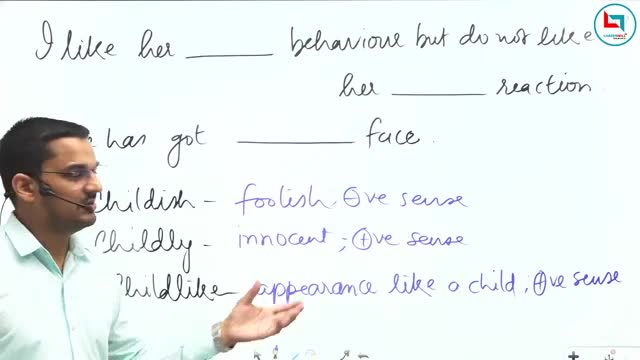 I like her ______ behaviour but do not like
her ______ reaction.
has got ______ face.
Childish - foolish, ⊖ve sense
Childly - innocent; ⊕ve sense
Childlike - appearance like a child, ⊕ve sense